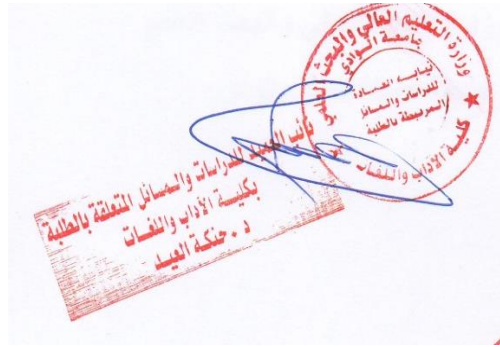 وزارة التعليم العالي والبحث العلمي
جامعة الوادي
نيابة العمادة
للدراسات والمسائل
المرتبطة بالطلبة
كلية الآداب واللغات
نائب العميد للدراسات والمسائل المتعلقة بالطلبة
بكليـة الأداب واللغـات
د. حنكة العيد